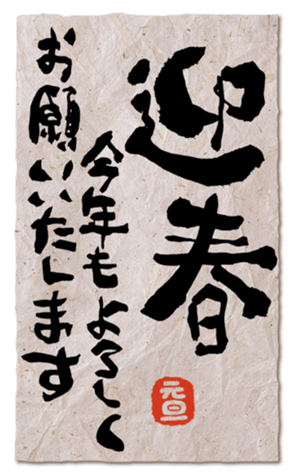 迎春
今年もよろしく
お願いいたします
元旦